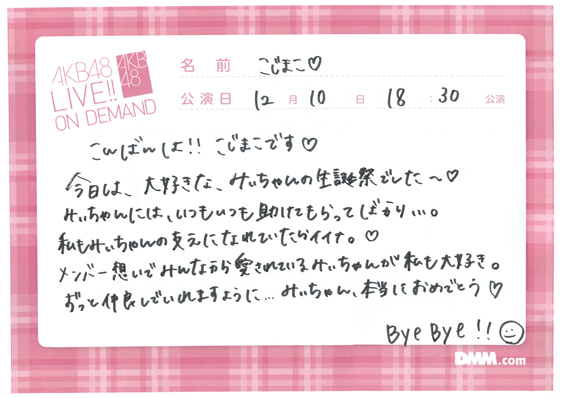 AKB48
LIVE!!
ON DEMAND
AKB
48
名 前 こじまこ♡
公演日 12 月 10 日 18 : 30 公演
こんばんは!! こじまこです♡
今日は、大好きな、みぃちゃんの生誕祭でした〜♡
みぃちゃんには、いつもいつも助けてもらってばかり…。
私もみぃちゃんの支えになれていたらイイナ。♡
メンバー想いでみんなから愛されているみぃちゃんが私も大好き。
ずっと仲良しでいれますように… みぃちゃん、本当におめでとう♡
Bye Bye!!
DMM.com